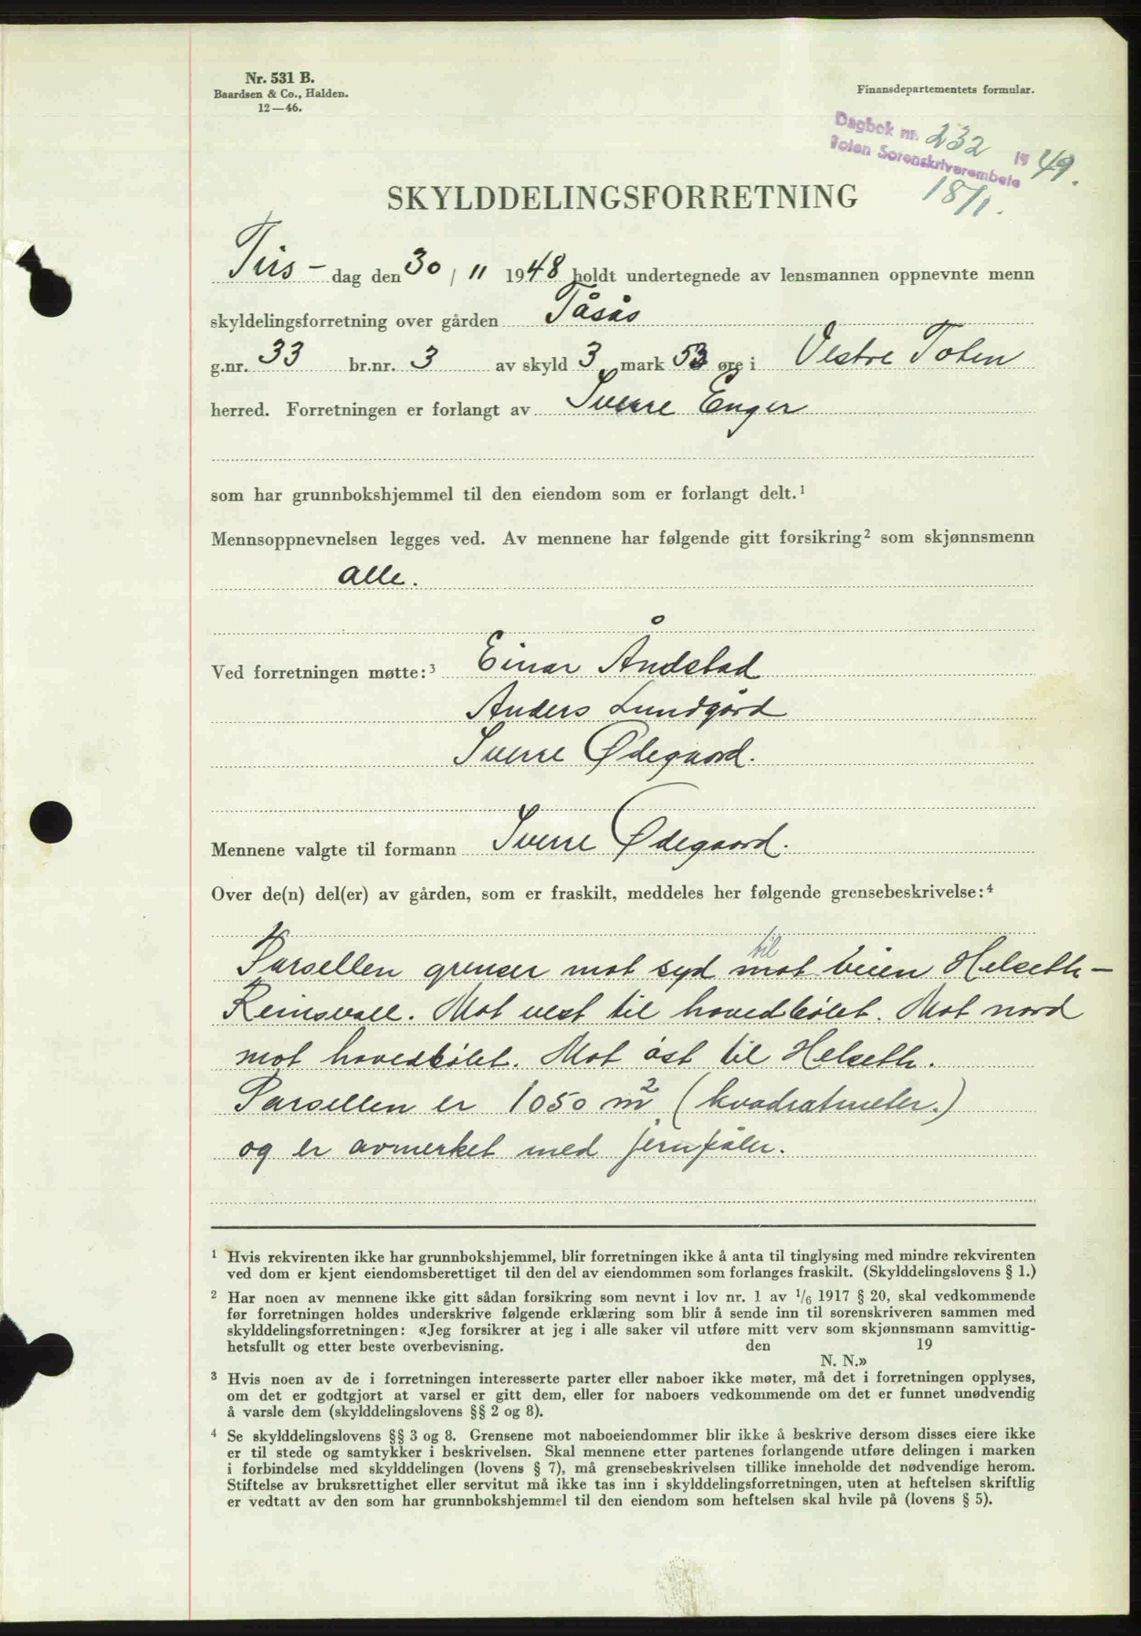 Nr. 531 B.
Baardsen & Co., Halden.
12—46.
Finansdepartementets formular.
Dagbok nr. 232 19 49.
Toten Sorenskriverembete
18/1.
SKYLDDELINGSFORRETNING
Tirs- dag den 30 / 11 1948 holdt undertegnede av lensmannen oppnevnte menn
skyldelingsforretning over gården Tåsås
g.nr. 33 br.nr. 3 av skyld 3 mark 53 øre i Vestre Toten
herred. Forretningen er forlangt av Sverre Enger
som har grunnbokshjemmel til den eiendom som er forlangt delt.¹
Mennsoppnevnelsen legges ved. Av mennene har følgende gitt forsikring² som skjønnsmenn
alle.
Ved forretningen møtte:³ Einar Åndstad
Anders Lundgård
Sverre Ødegaard.
Mennene valgte til formann Sverre Ødegaard.
Over de(n) del(er) av gården, som er fraskilt, meddeles her følgende grensebeskrivelse:⁴
til
Parsellen grenser mot syd mot veien Helseth-
Reinsvoll. Mot vest til hovedbølet. Mot nord
mot hovedbølet. Mot øst til Helseth.
Parsellen er 1050 m² (kvadratmeter.)
og er avmerket med jernpåler.
¹ Hvis rekvirenten ikke har grunnbokshjemmel, blir forretningen ikke å anta til tinglysing med mindre rekvirenten
ved dom er kjent eiendomsberettiget til den del av eiendommen som forlanges fraskilt. (Skylddelingslovens § 1.)
² Har noen av mennene ikke gitt sådan forsikring som nevnt i lov nr. 1 av 1/6 1917 § 20, skal vedkommende
før forretningen holdes underskrive følgende erklæring som blir å sende inn til sorenskriveren sammen med
skylddelingsforretningen: «Jeg forsikrer at jeg i alle saker vil utføre mitt verv som skjønnsmann samvittig-
hetsfullt og etter beste overbevisning. den 19
N. N.»
³ Hvis noen av de i forretningen interesserte parter eller naboer ikke møter, må det i forretningen opplyses,
om det er godtgjort at varsel er gitt dem, eller for naboers vedkommende om det er funnet unødvendig
å varsle dem (skylddelingslovens §§ 2 og 8).
⁴ Se skylddelingslovens §§ 3 og 8. Grensene mot naboeiendommer blir ikke å beskrive dersom disses eiere ikke
er til stede og samtykker i beskrivelsen. Skal mennene etter partenes forlangende utføre delingen i marken
i forbindelse med skylddelingen (lovens § 7), må grensebeskrivelsen tillike inneholde det nødvendige herom.
Stiftelse av bruksrettighet eller servitut må ikke tas inn i skylddelingsforretningen, uten at heftelsen skriftlig
er vedtatt av den som har grunnbokshjemmel til den eiendom som heftelsen skal hvile på (lovens § 5).